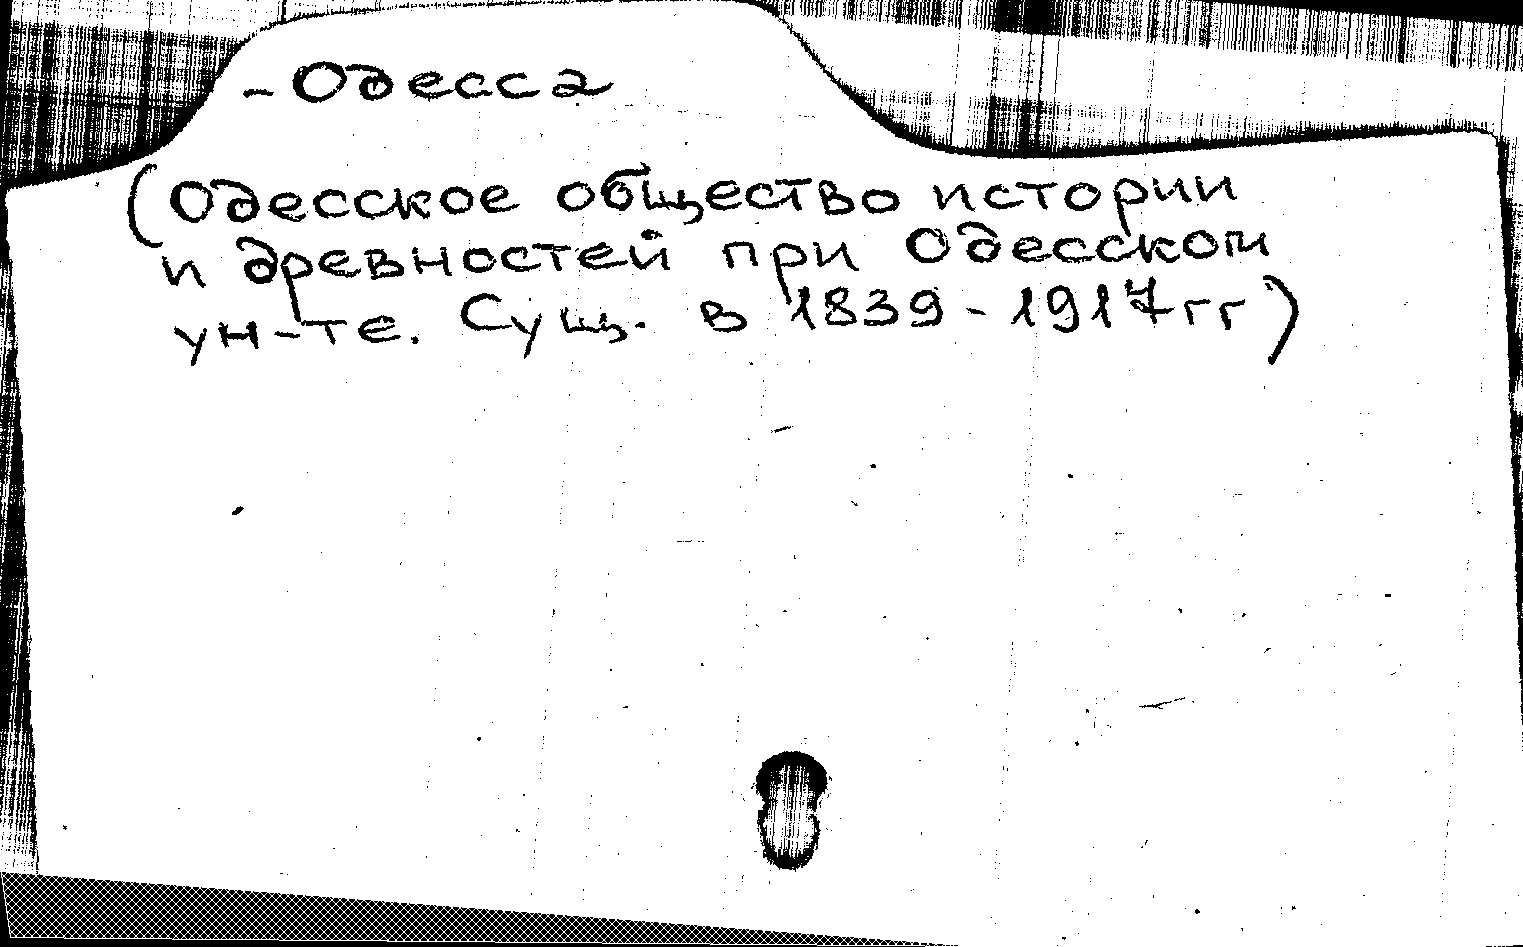 - Одесса
(Одесское общество истории
и древностей при Одесском
ун-те. Сущ. в 1839-1917гг)